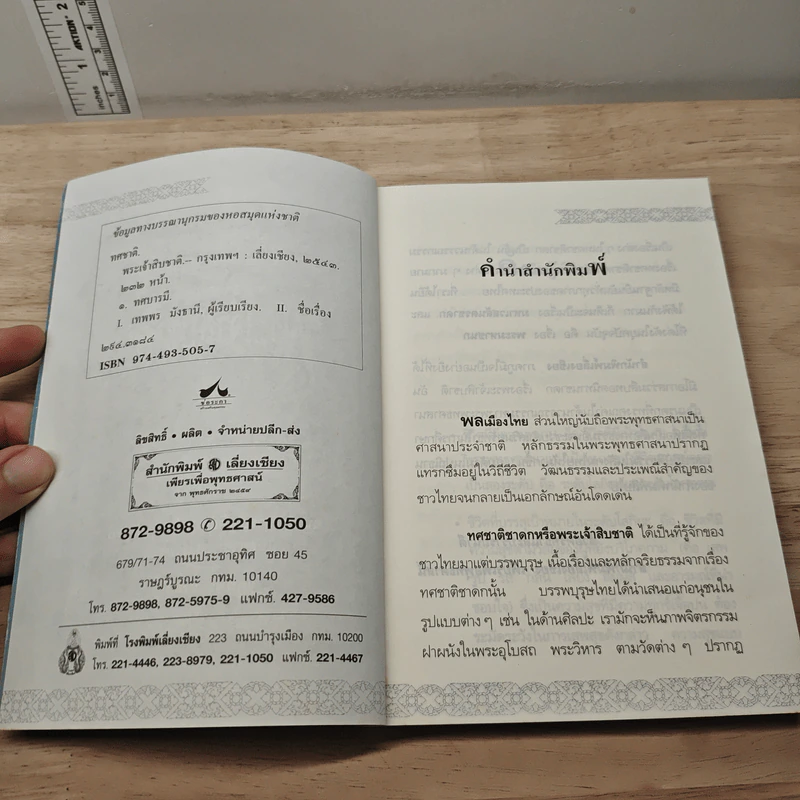 ข้อมูลทางบรรณานุกรมของหอสมุดแห่งชาติ
ทศชาติ.
พระเจ้าสิบชาติ.-- กรุงเทพฯ : เลี่ยงเชียง, ๒๕๔๓.
๒๓๒ หน้า.
๑. ทศบารมี.
I. เทพพร มังธานี, ผู้เรียบเรียง. II. ชื่อเรื่อง
๒๙๔.๓๑๘๔
ISBN 974-493-505-7
ลิขสิทธิ์ • ผลิต • จำหน่ายปลีก-ส่ง
สำนักพิมพ์ เลี่ยงเชียง
เพียรเพื่อพุทธศาสน์
จาก พุทธศักราช ๒๔๕๙
872-9898 ✆ 221-1050
679/71-74 ถนนประชาอุทิศ ซอย 45
ราษฎร์บูรณะ กทม. 10140
โทร. 872-9898, 872-5975-9 แฟกซ์. 427-9586
พิมพ์ที่ โรงพิมพ์เลี่ยงเชียง 223 ถนนบำรุงเมือง กทม. 10200
โทร. 221-4446, 223-8979, 221-1050 แฟกซ์. 221-4467
คำนำสำนักพิมพ์
พลเมืองไทย ส่วนใหญ่นับถือพระพุทธศาสนาเป็น
ศาสนาประจำชาติ หลักธรรมในพระพุทธศาสนาปรากฏ
แทรกซึมอยู่ในวิถีชีวิต วัฒนธรรมและประเพณีสำคัญของ
ชาวไทยจนกลายเป็นเอกลักษณ์อันโดดเด่น
ทศชาติชาดกหรือพระเจ้าสิบชาติ ได้เป็นที่รู้จักของ
ชาวไทยมาแต่บรรพบุรุษ เนื้อเรื่องและหลักจริยธรรมจากเรื่อง
ทศชาติชาดกนั้น บรรพบุรุษไทยได้นำเสนอแก่อนุชนใน
รูปแบบต่าง ๆ เช่น ในด้านศิลปะ เรามักจะเห็นภาพจิตรกรรม
ฝาผนังในพระอุโบสถ พระวิหาร ตามวัดต่าง ๆ ปรากฏ
AKTION
inches
1
2
1
2
3
4
5